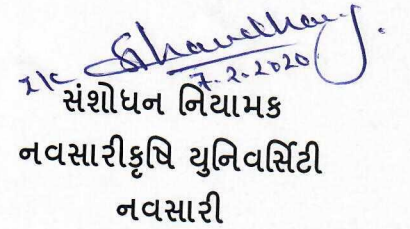 I/c Shaudhary.
7.2.2020
સંશોધન નિયામક
નવસારીકૃષિ યુનિવર્સિટી
નવસારી